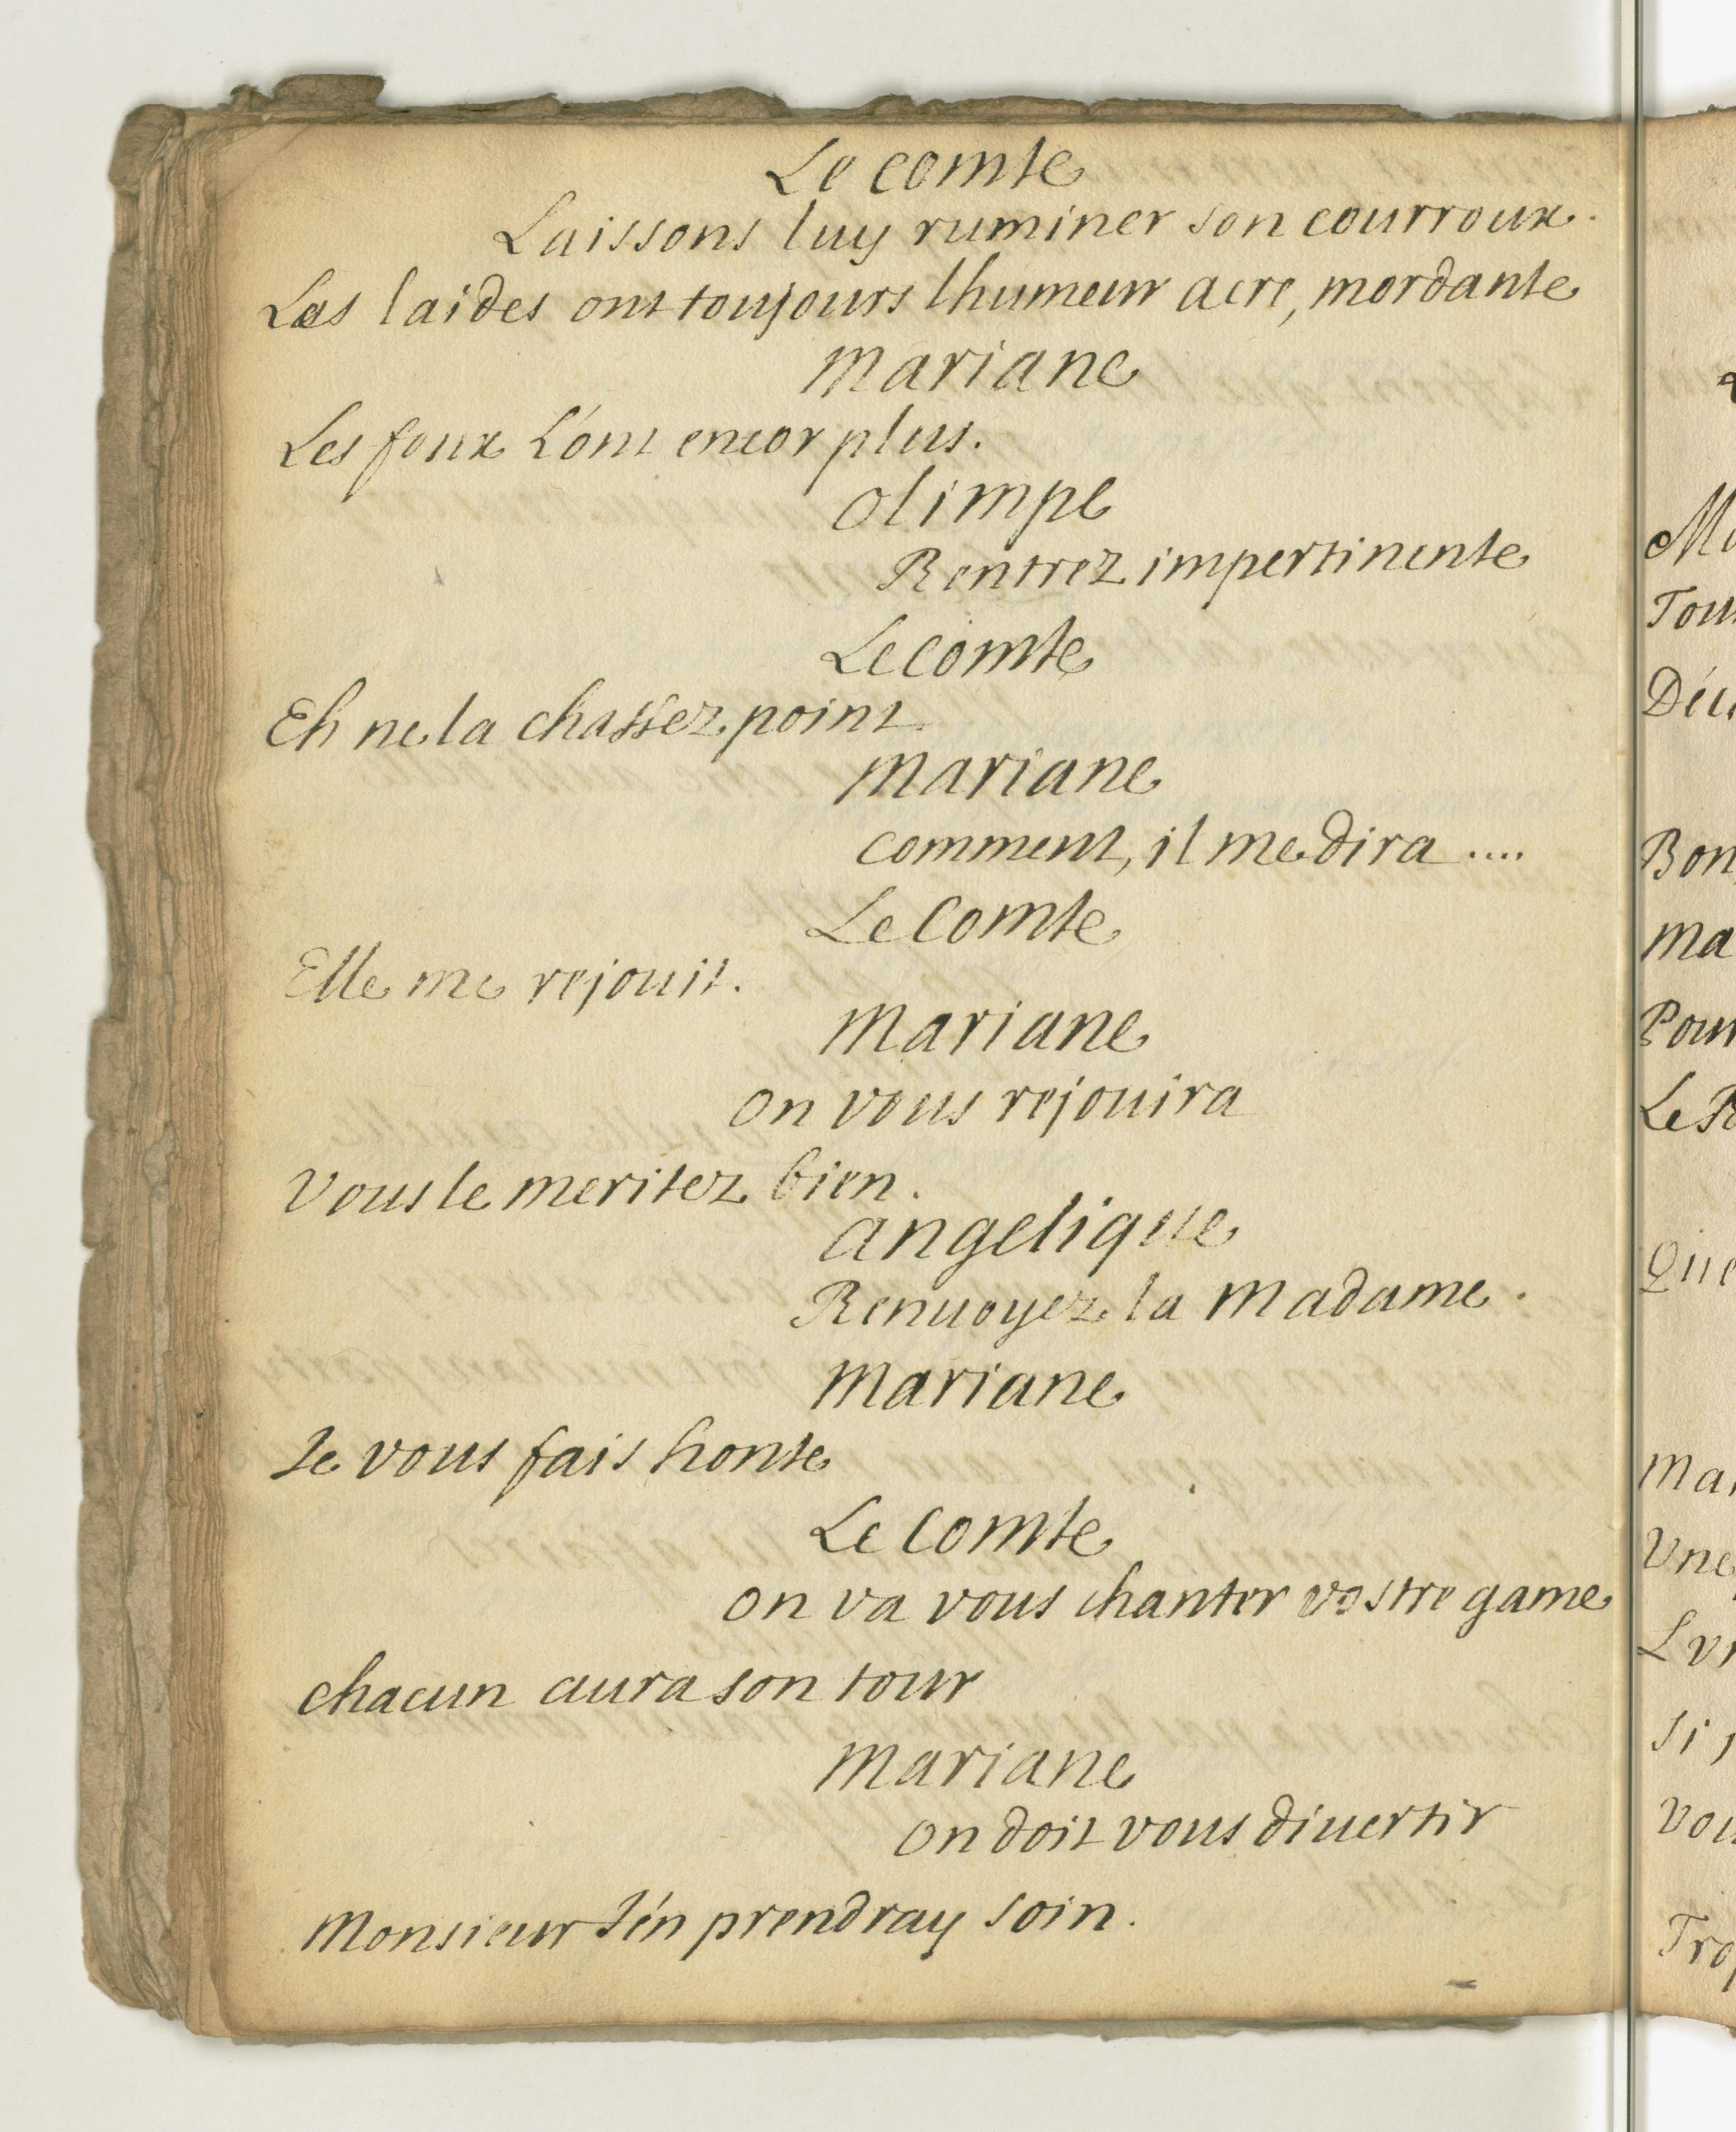 Le comte
Laissons luy ruminer son courroux.
Les laides ont toujours lhumeur acre, mordante
Mariane
Les foux L'ont encor plus.
Olimpe
Rentrez impertinente
Le comte
Eh ne la chassez point
Mariane
comment, il me dira ....
Le Comte
Elle me rejouit.
Mariane
on vous rejouira
Vous le meritez bien.
angelique
Renuoyez la Madame.
Mariane
Je vous fais honte
Le Comte
on va vous chanter vostre game
chacun aura son tour
Mariane
on doit vous diuertir
Monsieur J'en prendray soin.
Tou
Bon
Ma
Pour
Le R
Que
Mai
Une
Si
Vou
Trop